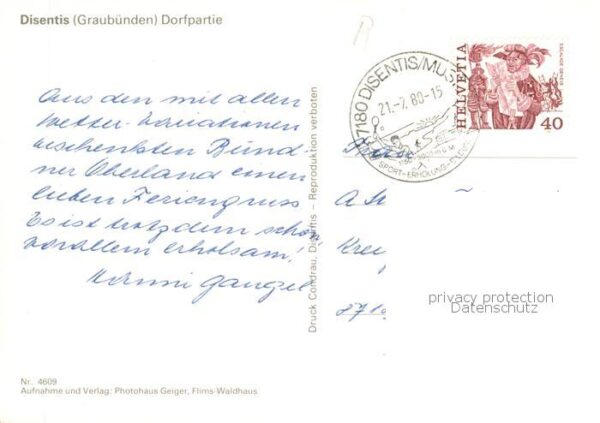 Disentis (Graubünden) Dorfpartie
Aus den mit allen
Wetter-Variationen
beschenkten Bünd-
ner Oberland einen
lieben Feriengruss
Es ist trotzdem schön
vorallem erholsam!
Gangel
Druck Condrau, Disentis – Reproduktion verboten
7180 DISENTIS/MUS
21.-7.80-15
SPORT-ERHOLUNG-
HELVETIA
ESCALADE GENEVE
40
A St
Kre
8710
privacy protection
Datenschutz
Nr. 4609
Aufnahme und Verlag: Photohaus Geiger, Flims-Waldhaus